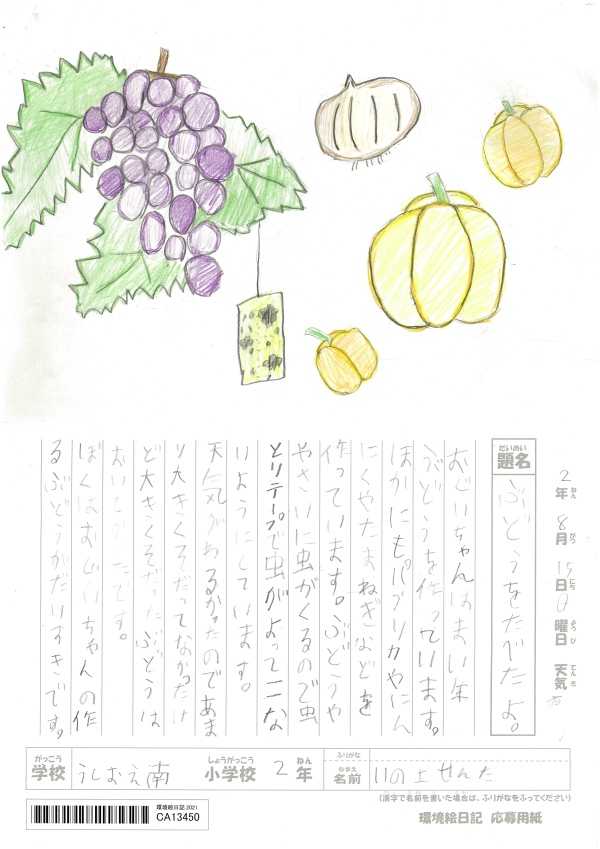 2年 8月 15日 日曜日 天気
ねん がつ にち ようび てんき
だいめい
題名
ぶどうをたべたよ。
おじいちゃんはまい年
ぶどうを作っています。
ほかにもパプリカやにん
にくやたまねぎなどを
作っています。ぶどうや
やさいに虫がくるので虫
とりテープで虫がよってこな
いようにしています。
天気がわるかったのであま
り大きくそだってなかったけ
ど大きくそだったぶどうは
おいしかったです。
ぼくはおじいちゃんの作
るぶどうがだいすきです。
がっこう
学校
うしおえ南
しょうがっこう
小学校
2
ねん
年
ふりがな
なまえ
名前
いの上 せんた
(漢字で名前を書いた場合は、ふりがなをふってください)
環境絵日記 2021
CA13450
環境絵日記 応募用紙